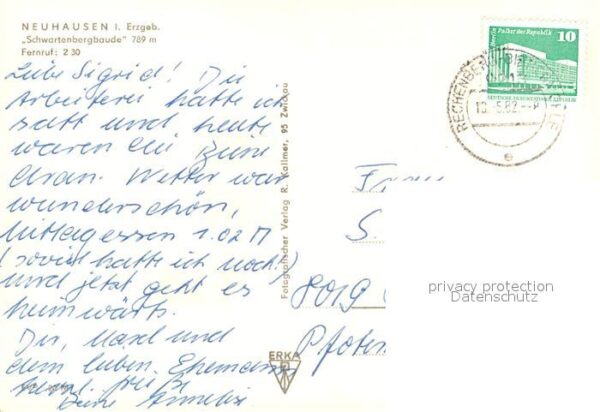 NEUHAUSEN i. Erzgeb.
„Schwartenbergbaude" 789 m
Fernruf: 2 30
Liebe Sigrid! Die
Arbeiterei hatte ich
satt und heute
waren die Beine
dran. Wetter war
wunderschön,
Mittagessen 1.02 M
(soviel hatte ich noch!)
und jetzt geht es
heimwärts.
Dir, und
dem lieben Ehemann
herzl. Grüße
Deine Annelie
Fotografischer Verlag R. Kallmer, 95 Zwickau
ERKA
Berlin Palast der Republik
10
DEUTSCHE DEMOKRATISCHE REPUBLIK
RECHENBERG-BIE
5.82
e
Frau
S.
8019
privacy protection
Datenschutz